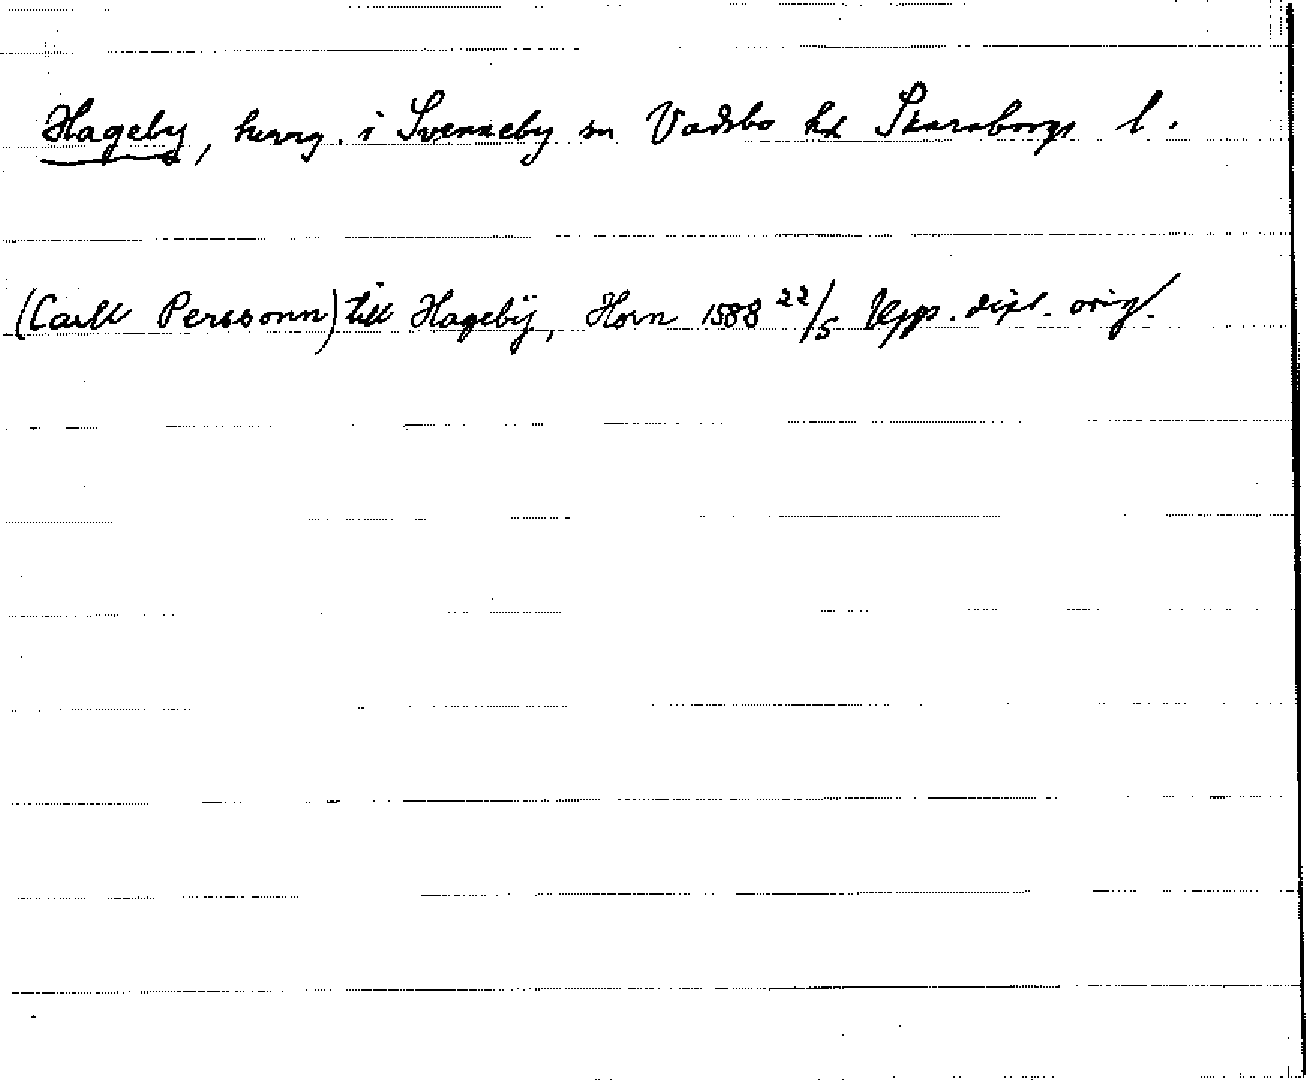 Hageby, herrg. i Svenneby sn Vadsbo hd Skaraborgs l.
(Carll Perssonn) till Hagebÿ, Horn 1588 22/5 Upps. dipl. orig.